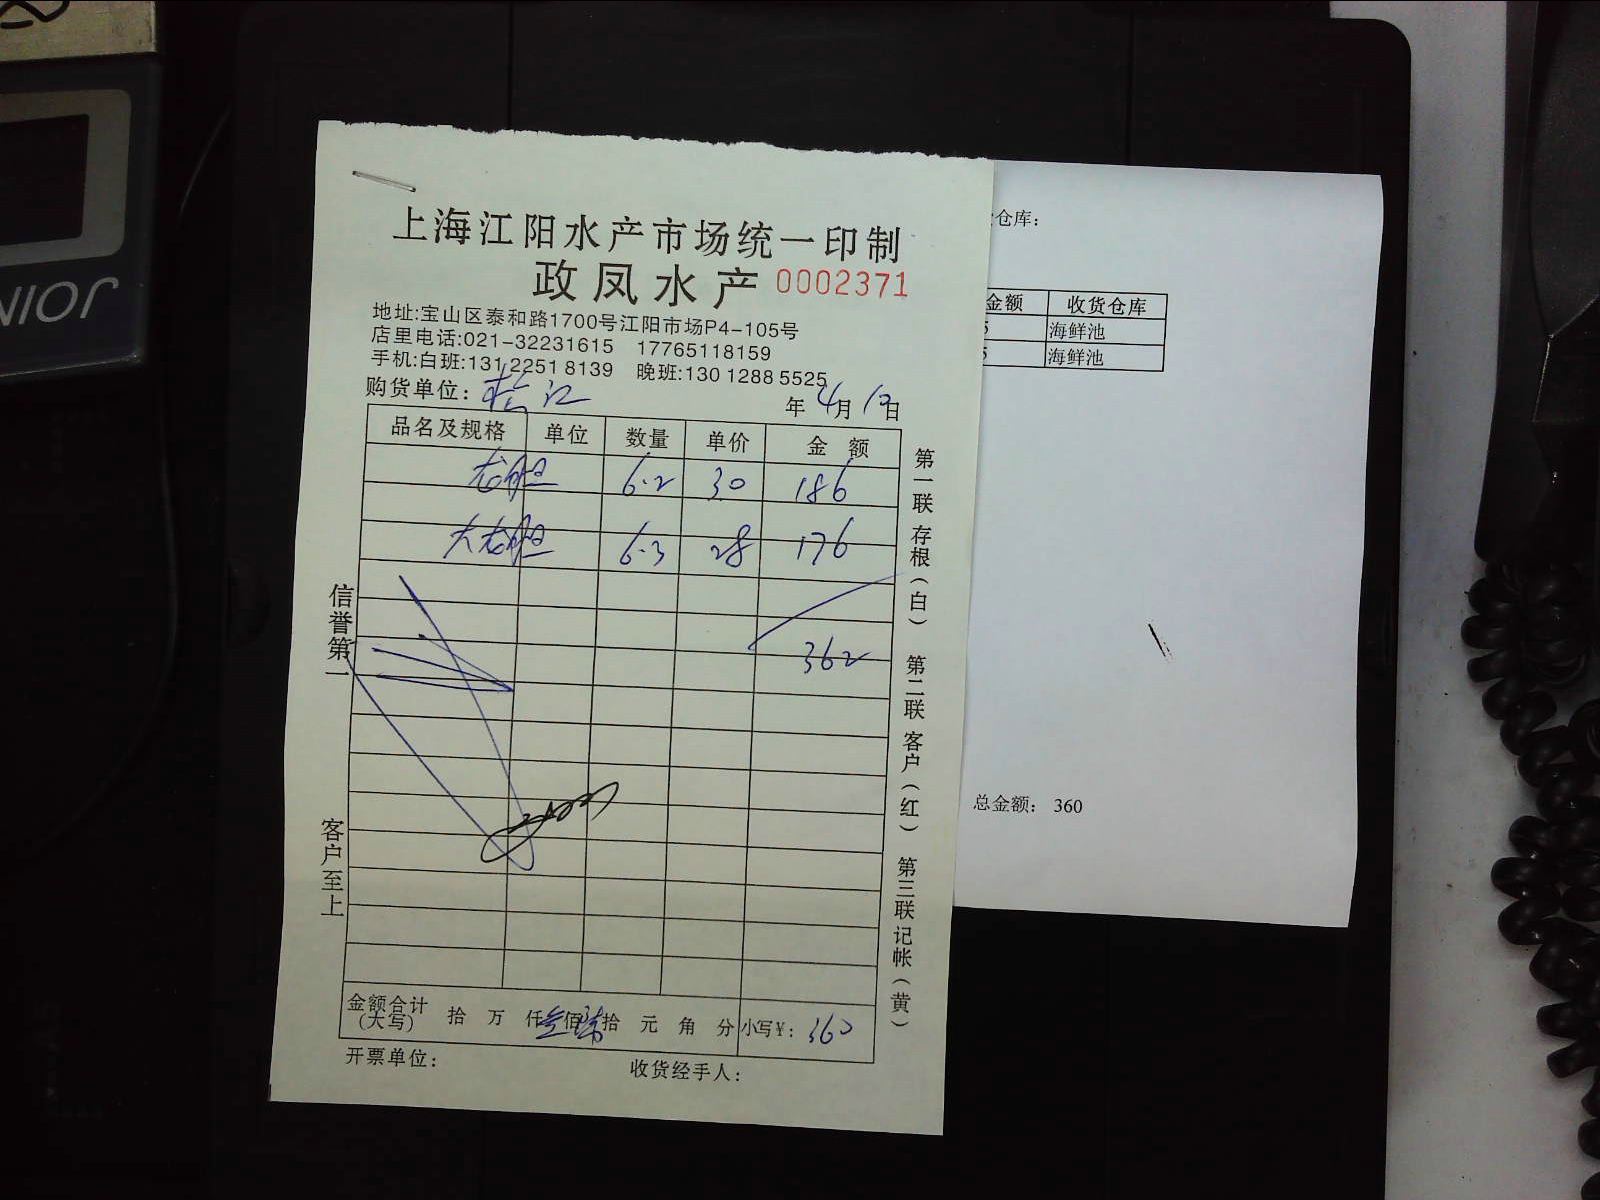 上海江阳水产市场统一印制
政凤水产 0002371
地址:宝山区泰和路1700号江阳市场P4-105号
店里电话:021-32231615 17765118159
手机:白班:131 2251 8139 晚班:130 1288 5525
购货单位: 江 年 4月 10日
品名及规格 单位 数量 单价 金额
龙胆 6.2 30 186
大龙胆 6.3 28 176
362
金额合计(大写) 拾 万 仟 叁佰 陆拾 元 角 分 小写¥: 360
开票单位: 收货经手人:
信誉第一
客户至上
第一联存根(白) 第二联客户(红) 第三联记帐(黄)
仓库:
金额 收货仓库
5 海鲜池
5 海鲜池
总金额: 360
JOIN